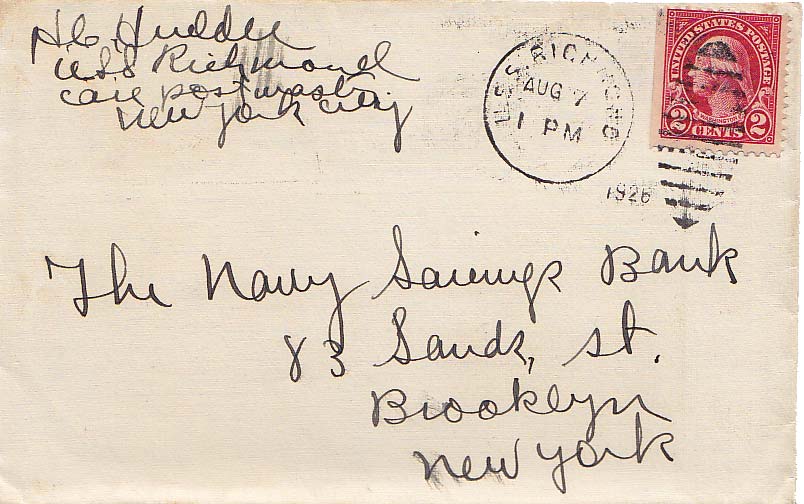 HC Hudder
USS Richmond
care postmaster
New York City
U.S.S. RICHMOND
AUG 7
1 PM
1926
UNITED STATES POSTAGE
WASHINGTON
2 CENTS 2
The Navy Savings Bank
83 Sands, st.
Brooklyn
New York